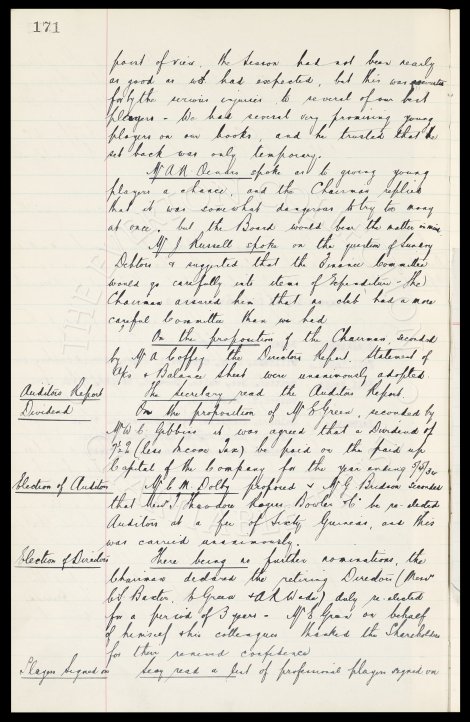 171
point of view, the season had not been nearly
as good as we had expected, but this was accounted
for by the serious injuries to several of our best
players - We had several very promising young
players on our books, and he trusted that the
set back was only temporary.
Mr A R spoke as to giving young
players a chance, and the Chairman replied
that it was somewhat dangerous to try too many
at once, but the Board would bear the matter in mind
Mr J Russell spoke on the question of Sundry
Debtors & suggested that the Finance Committee
would go carefully into items of Expenditure - The
Chairman assured him that no club had a more
careful Committee than we had
On the proposition of the Chairman, seconded
by Mr A Coffey the Directors Report, Statement of
A/cs & Balance Sheet were unanimously adopted.
Auditors Report The secretary read the Auditors Report.
Dividend On the proposition of Mr E Green, seconded by
Mr W C Gibbins it was agreed that a Dividend of
(less Income Tax) be paid on the paid up
Capital of the Company for the year ending 5/5/34
Election of Auditors Mr C M Dolby proposed & Mr G Bridson seconded
that Messrs Theodore Rogers Bowler & Co be re-elected
Auditors at a fee of Sixty Guineas, and this
was carried unanimously.
Election of Directors There being no further nominations, the
Chairman declared the retiring Directors (Messrs
Baxter, E Green & A R Wade) duly re-elected
for a period of 3 years - Mr E Green on behalf
of himself & his colleagues thanked the Shareholders
for their renewed confidence
Players signed on Secy read a list of professional players signed on